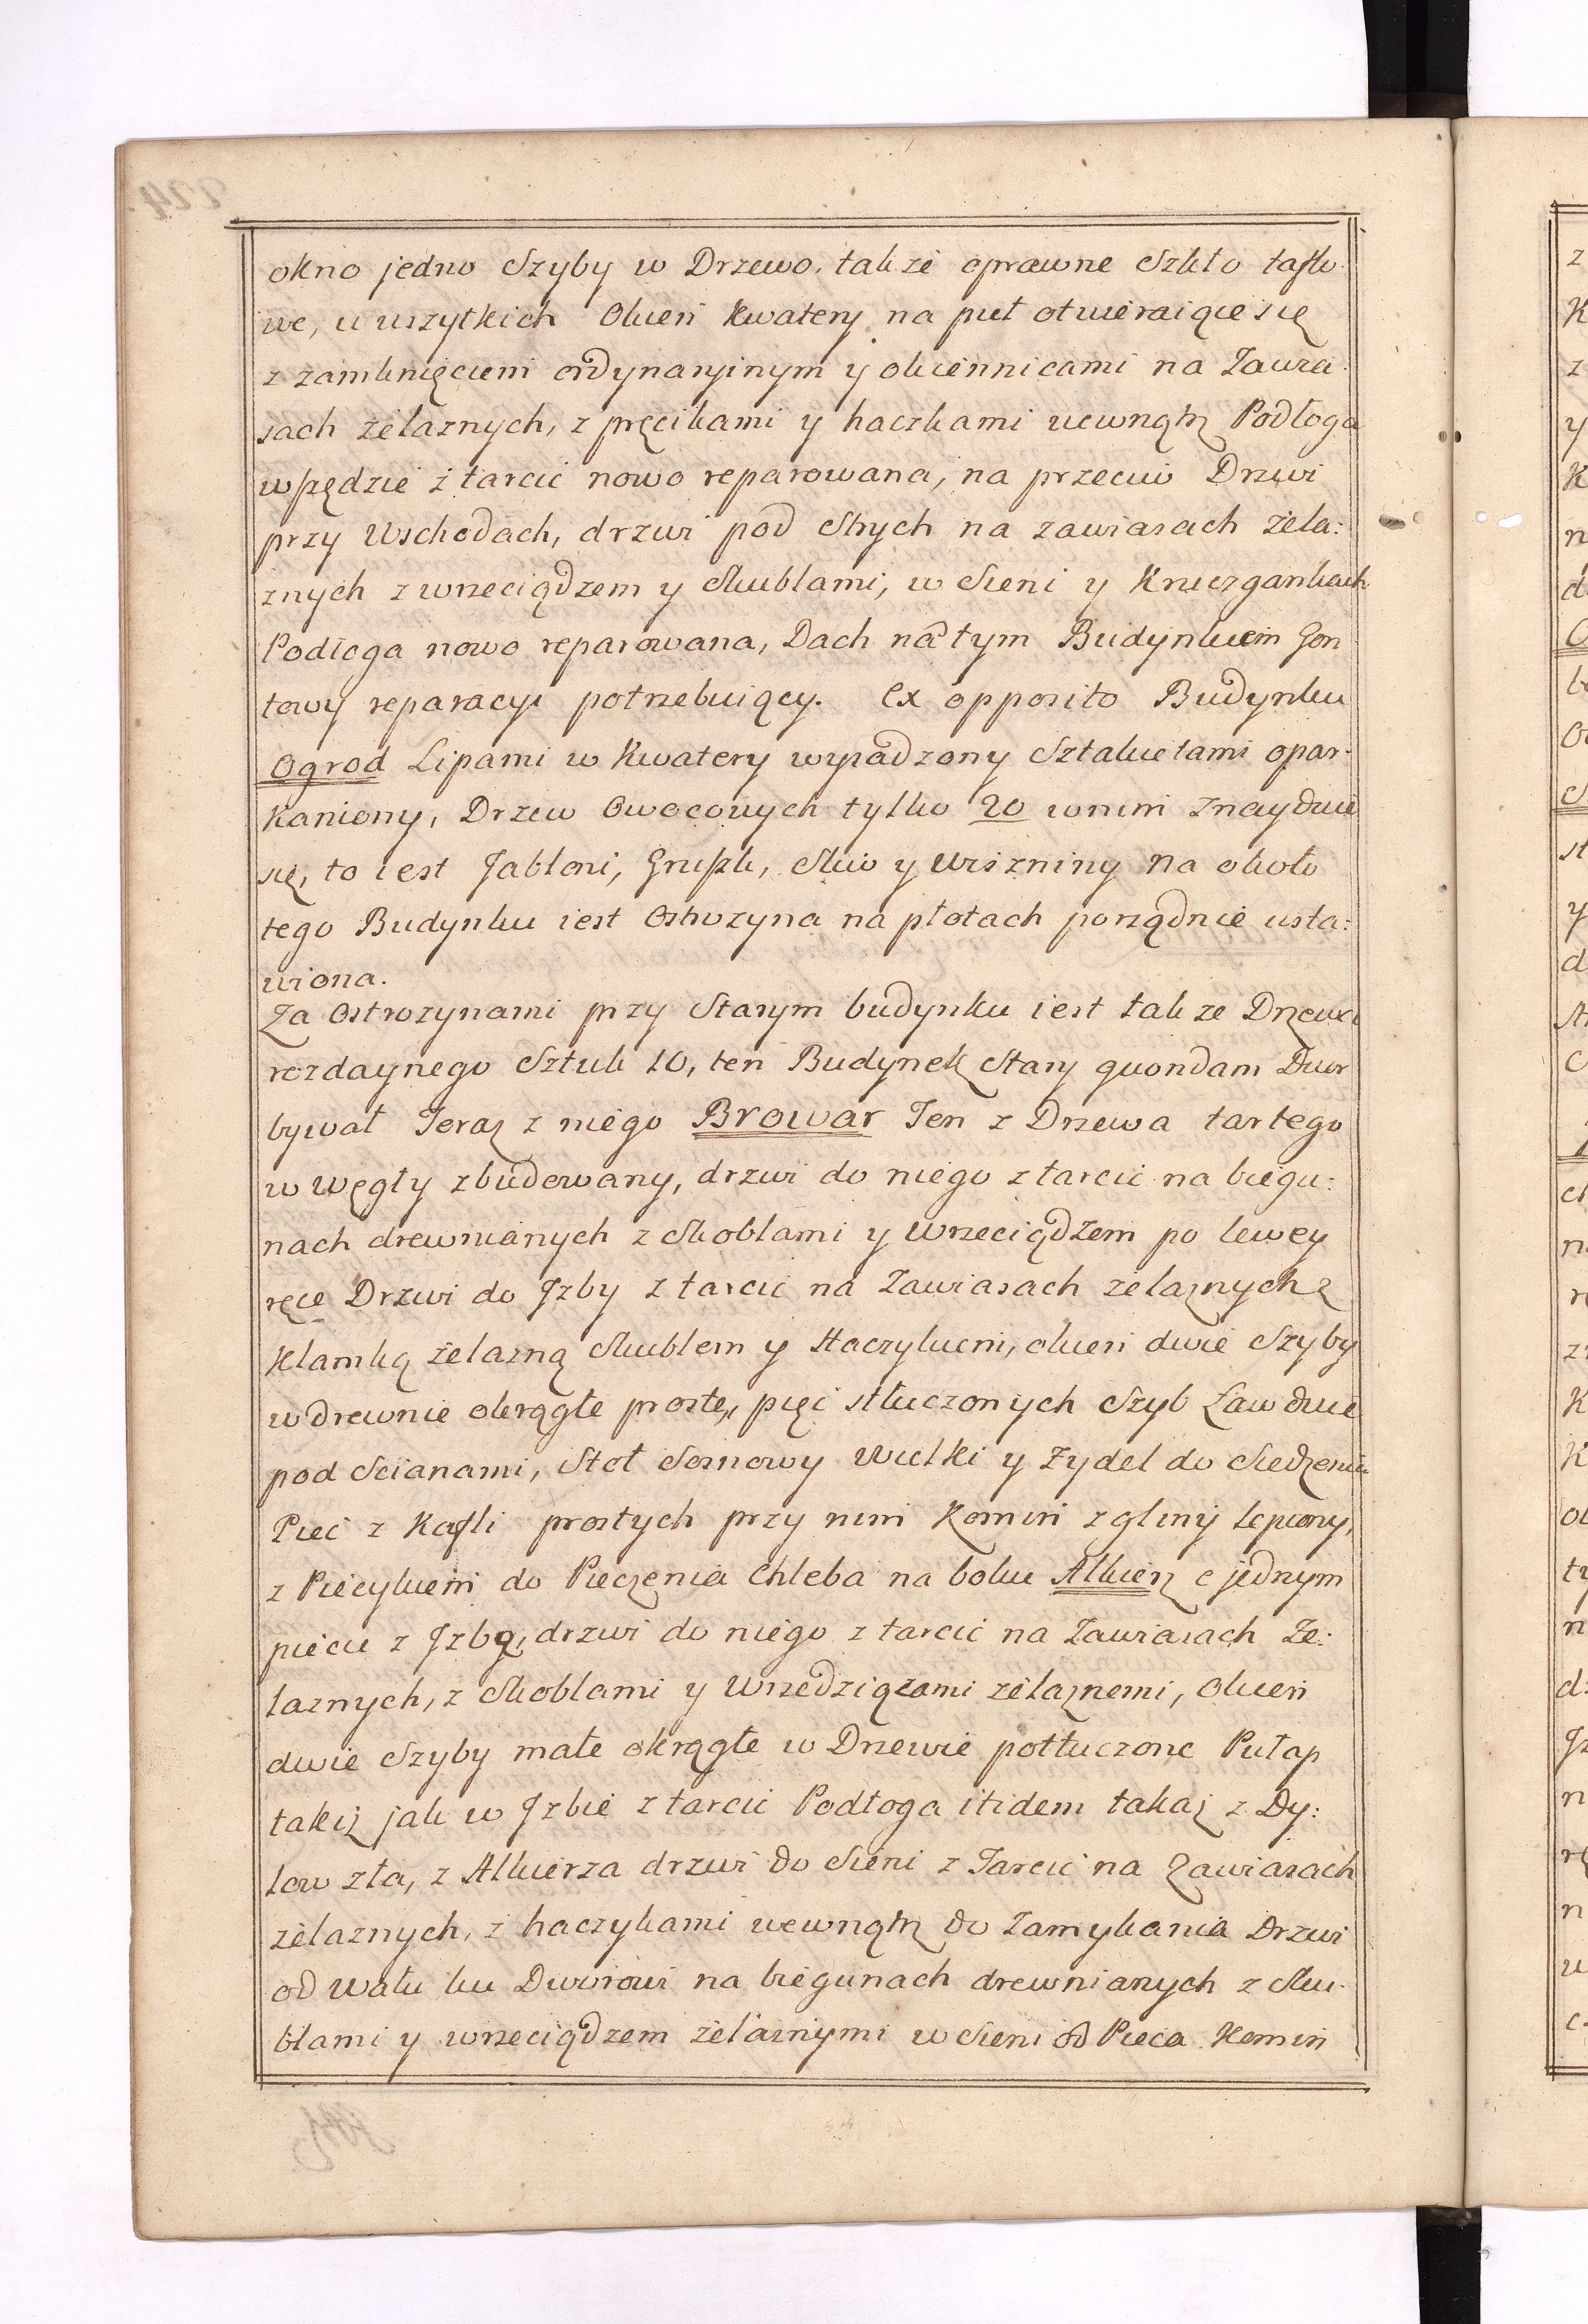 okno jedno Szyby w Drzewo, także oprawne Szkło taflo-
we, u wszytkich Okien Kwatery na puł otwieraiące się
z zamknięciem ordynaryinym y okiennicami na Zawia-
sach żelaznych, z pręcikami y haczkami wewnątrz Podłoga
wszędzie z tarcic nowo reparowana, na przeciw Drzwi
przy Wschodach, drzwi pod Strych na zawiasach żela:
znych z wrzeciądzem y Skublami, w Sieni y Kruczgankach
Podłoga nowo reparowana, Dach na tym Budynkiem Gon-
towy reparacyi potrzebuiący. Ex opposito Budynku
Ogrod Lipami w Kwatery wysadzony Sztakietami opar-
kaniony, Drzew Owocowych tylko 20 w nim znayduie
się, to iest Jabłoni, Gruszk, Sliw y Wiszniny na około
tego Budynku iest Ostrozyna na płotach porządnie usta:
wiona.
Za Ostrozynami przy Starym budynku iest takze Drzewa
rozdaynego Sztuk 10, ten Budynek Stary quondam Dwor
bywał Teraz z niego Browar Ten z Drzewa tartego
w Węgły zbudowany, drzwi do niego z tarcic na biegu:
nach drewnianych z Skoblami y Wrzeciądzem po lewey
ręce Drzwi do Jzby z tarcic na Zawiasach zelaznych z
Klamką żelazną Skublem y Haczykiem, okien dwie Szyby
w drewnie okrągłe proste, pięć stłuczonych Szyb Ław dwie
pod Scianami, Stoł Sosnowy Wielki y Zydel do Siedzenia
Piec z Kafli prostych przy nim Komin z gliny lepiony,
z Piecykiem do Pieczenia Chleba na boku Alkierz o jednym
piecu z Jzbą, drzwi do niego z tarcic na Zawiasach Że:
laznych, z Skoblami y Wrzedziązami żelaznemi, Okien
dwie Szyby małe okrągłe w Drzewie potłuczone Pułap
takiż jak w Jzbie z tarcic Podłoga itidem takaż z Dy:
low zła, z Alkierza drzwi do Sieni z Tarcic na Zawiasach
żelaznych, z haczykami wewnątrz do Zamykania Drzwi
od Wału ku Dworowi na biegunach drewnianych z Sku-
blami y wrzeciądzem żelaznymi w Sieni od Pieca Komin